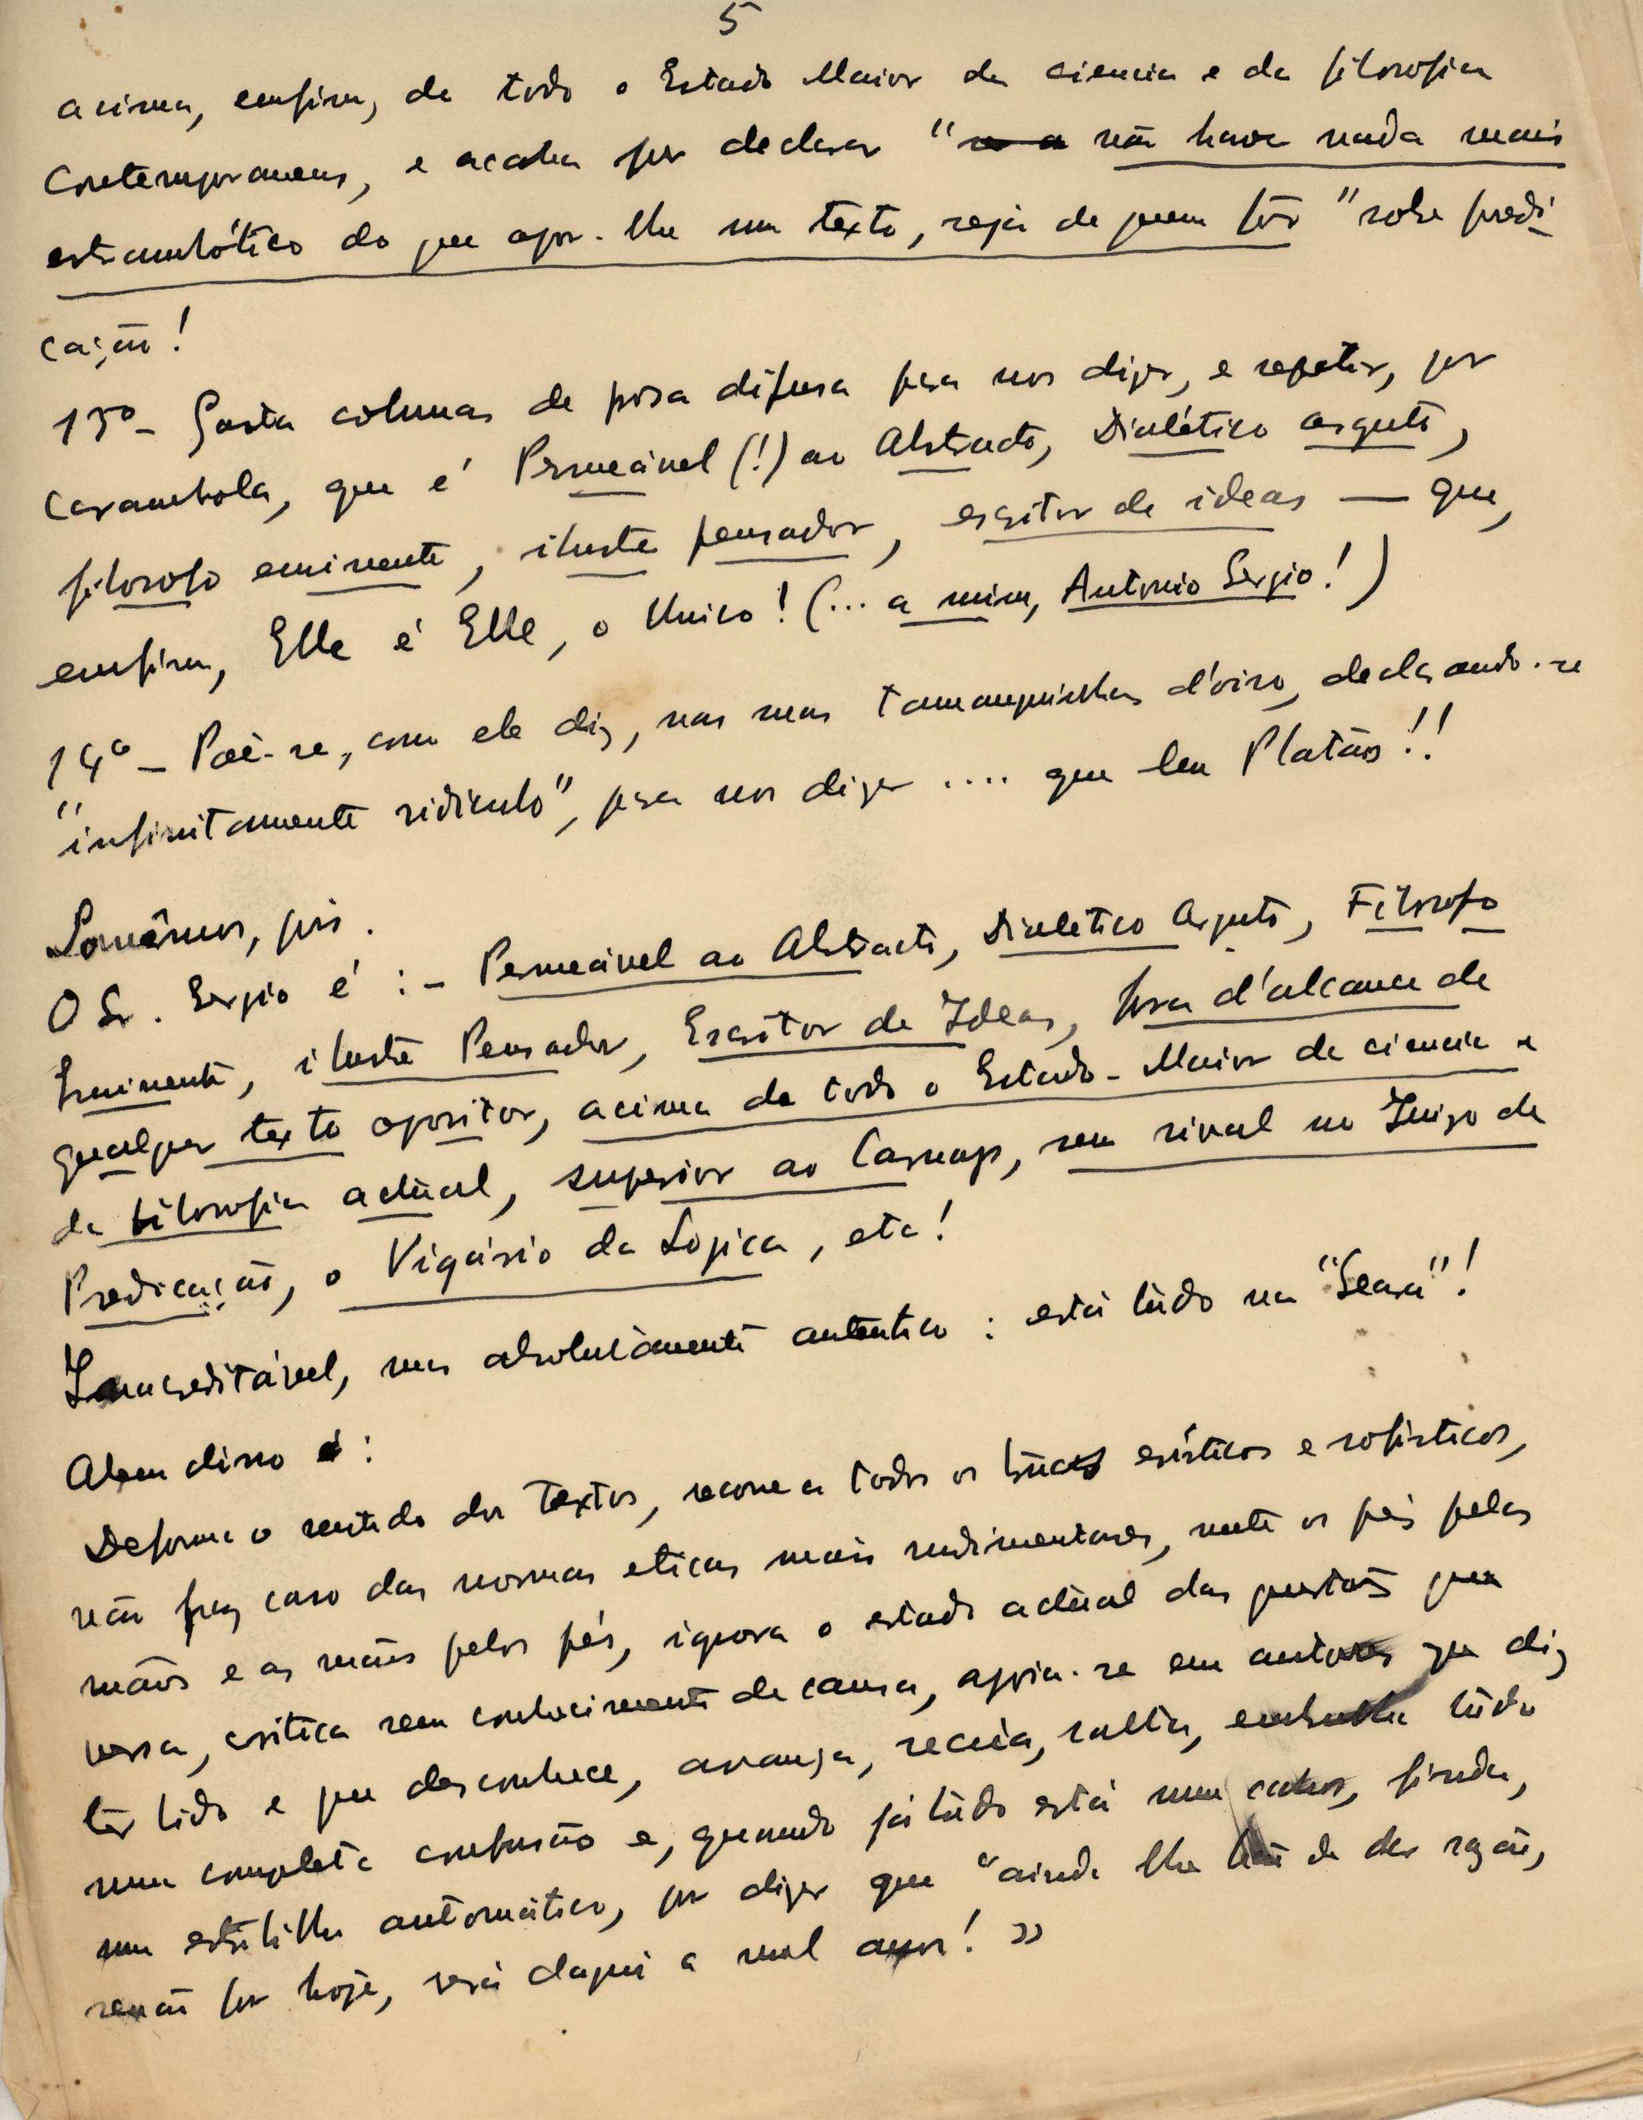 5
acima, emfim, de todo o Estado Maior da ciencia e da filosofia
contemporaneas, e acaba por declarar "não haver nada mais
estrambótico do que opor-lhe um texto, seja de quem fôr" sobe predi
cação!
13º - Gasta colunas de prosa difusa para nos dizer, e repetir, por
carambola, que é Permeável (!) ao Abstracto, Dialético arguto,
filosofo eminente, ilustre pensador, escritor de ideas — que,
emfim, Elle é Elle, o Unico! (... a mim, Antonio Sergio!)
14º - Põe-se, como ele diz, nas suas tamanquinhas d'oiro, declarando-se
"infinitamente ridiculo", para nos dizer .... que leu Platão!!
Somêmos, pois.
O Sr. Sergio é : - Permeável ao Abstracto, Dialético Arguto, Filosofo
Eminente, ilustre Pensador, Escritor de Ideas, fora d'alcance de
qualquer texto opositor, acima de todo o Estado-Maior da ciencia e
da filosofia actual, superior ao Carnap, sem rival no Juizo de
Predicação, o Vigário da Logica, etc!
Inacreditável, mas absolutamente autentico : está tudo na "Seara"!
Alem disso :
Deforma o sentido dos textos, recorre a todos os trucs erísticos e sofisticos,
não faz caso das normas eticas mais rudimentares, mete os pés pelas
mãos e as mãos pelos pés, ignora o estado actual das questões que
versa, critica sem conhecimento de causa, appoia-se em autores que diz
ter lido e que desconhece, avança, recúa, salta, embrulha tudo
numa completa confusão e, quando já tudo está num cahos, finda,
num estribilho automático, por dizer que "ainda lhe hão de dar razão,
senão fôr hoje, será daqui a mil anos! »